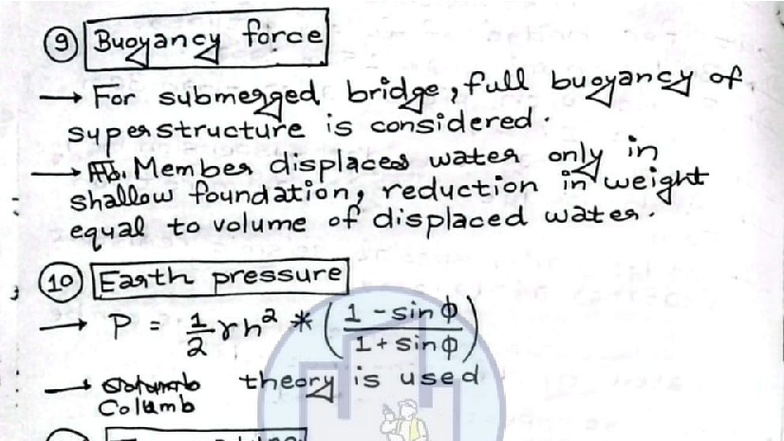 ⑨ Buoyancy force
→ For submerged bridge, full buoyancy of
superstructure is considered.
→ Member displaces water only in
shallow foundation, reduction in weight
equal to volume of displaced water.
⑩ Earth pressure
→ P = 1/2 γh² * (1 - sin φ / 1 + sin φ)
→ theory is used
Columb